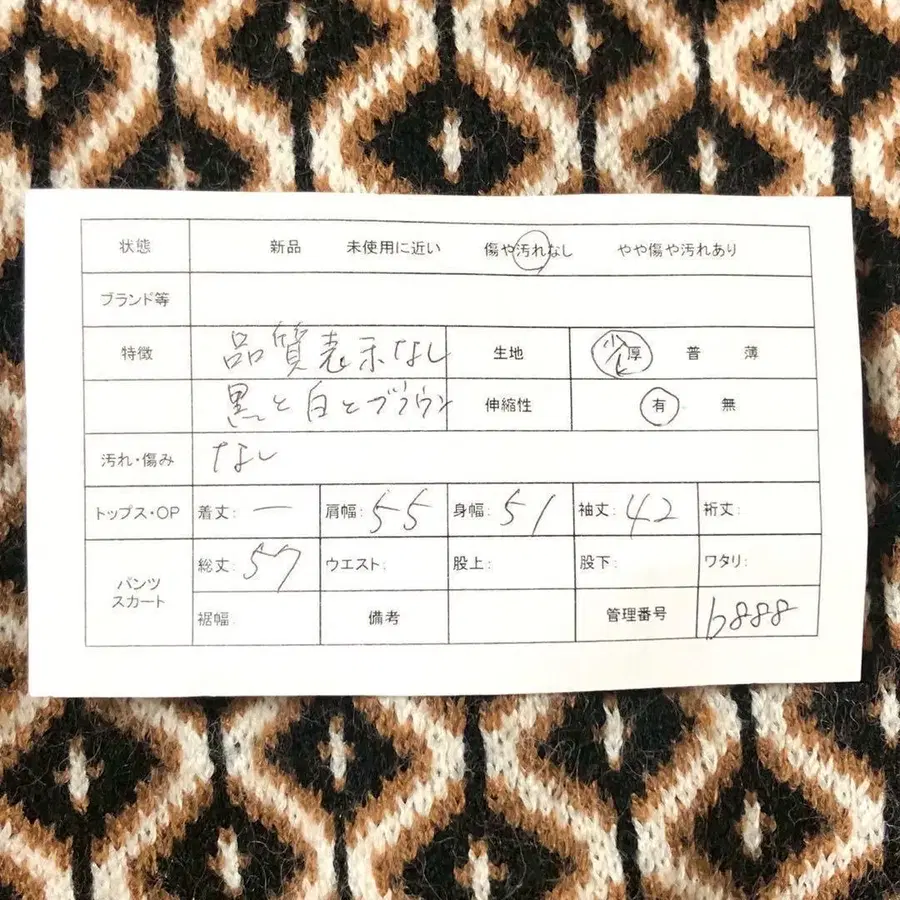 状態 新品 未使用に近い 傷や汚れなし やや傷や汚れあり
ブランド等
特徴 品質表示なし 生地 少し厚 普 薄
黒と白とブラウン 伸縮性 有 無
汚れ・傷み なし
トップス・OP 着丈: ー 肩幅: 55 身幅: 51 袖丈: 42 裄丈:
パンツ
スカート
総丈: 57 ウエスト: 股上: 股下: ワタリ:
裾幅: 備考 管理番号 b888